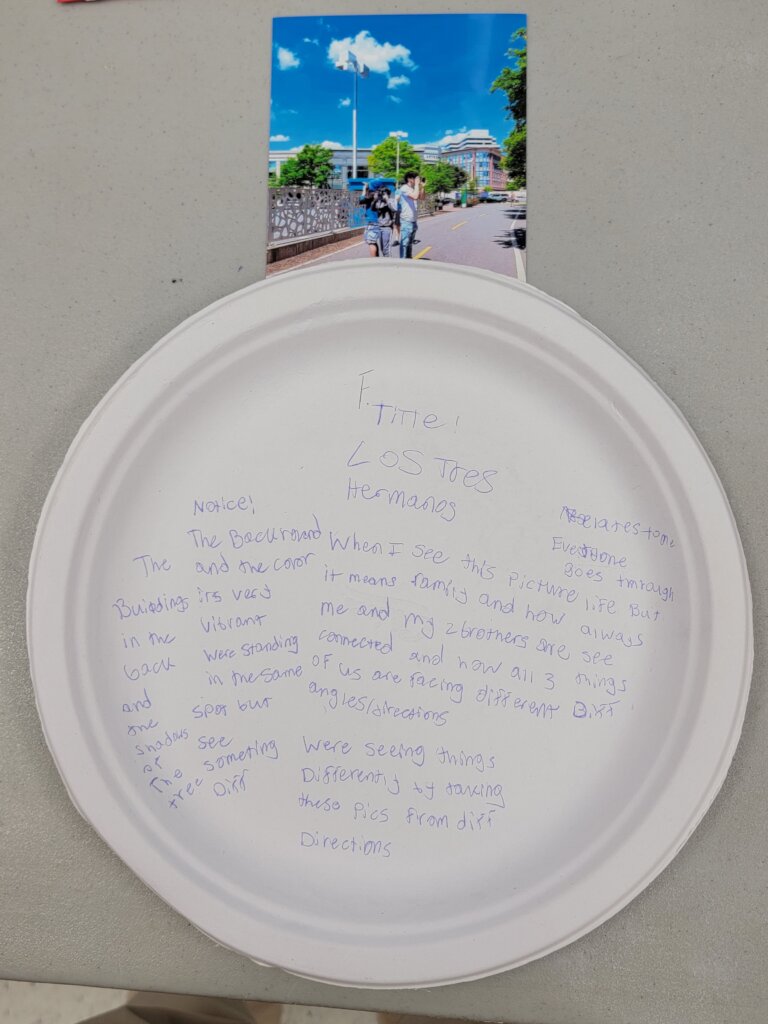 F.
Title!
Los Tres
Hermanos
Notice!
The
Buildings
in the
back
and
the
shadows
of
The
tree
The Backround
and the color
its very
vibrant
Were standing
in the same
spot but
see
someting
Diff
When I see this picture
it means family and how
me and my 2 brothers are
connected and how all 3
of us are facing different
angles/directions
Were seeing things
Differently by taking
these pics from diff
Directions
Relates to me
Everyone
goes through
life But
always
see
things
Diff